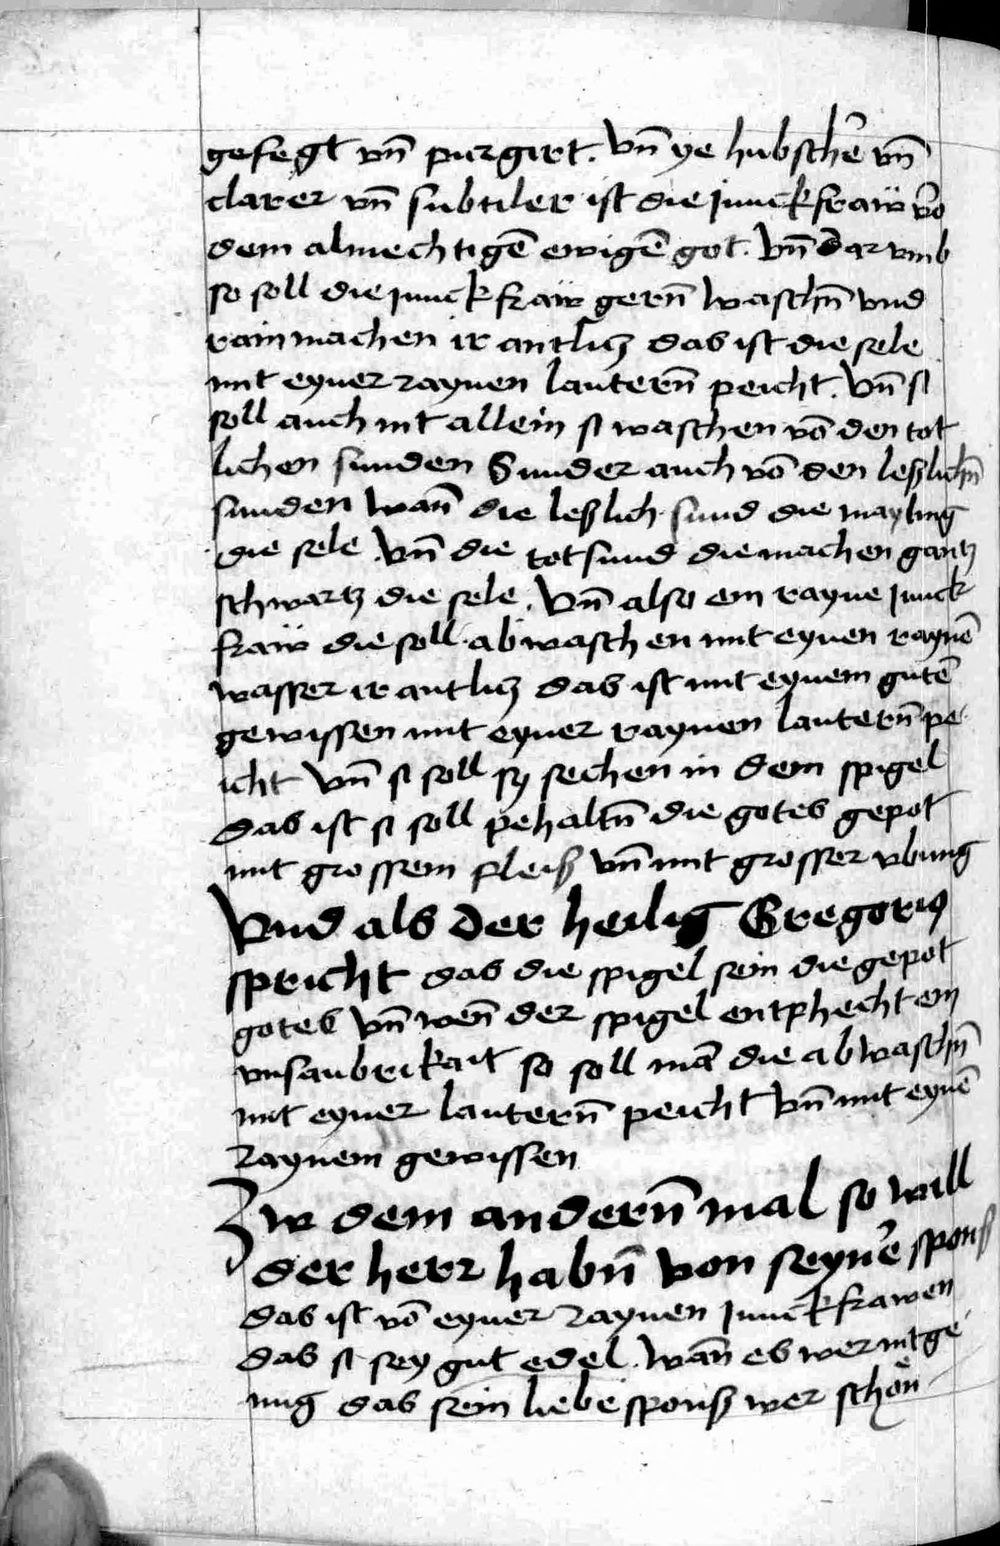 gefegt vn̄ purgirt. Vn̄ ye hubscher̄ vn̄
clarer vn̄ subtiler ist die junckfraw vō
dem almechtigē ewigē got. Vn̄ darvmb
so soll die junckfraw gern̄ waschn̄ vnd
rain machen ir antlicz das ist die sele
mit eyner raynen lautern̄ peicht. Vn̄ si
soll auch nit allein si waschen vō den tot
lichen sunden Sunder auch vō den leßlichn̄
sunden wan̄ die leßlich sund die mayling
die sele Vn̄ die totsund die machen gantz
schwartz die sele. Vn̄ also ein rayne junck
fraw die soll abwaschen mit eynen raynē
wasser ir antlicz das ist mit eynem gutē
gewissen mit eyner raynen lautern̄ pe
icht Vn̄ si soll sy sechen in dem spigel
das ist si soll pehaltn̄ die gotes gepot
mit grossem fleiß vn̄ mit grosser vbung
Vnd als der heilig Gregorius
spricht das die spigel sein die gepot
gotes Vn̄ wen̄ der spigel entphecht ein
vnsaubrikait so soll mā die abwaschn̄
mit eyner lautern̄ peicht Vn̄ mit eynē
raynem gewissen
Zw dem andern̄ mal so will
der herr habn̄ von seynē sponß
das ist vō eyner raynen junckfrawen
das si sey gut edel. Wan̄ es wer nit ge
nug das sein liebe sponß wer schön